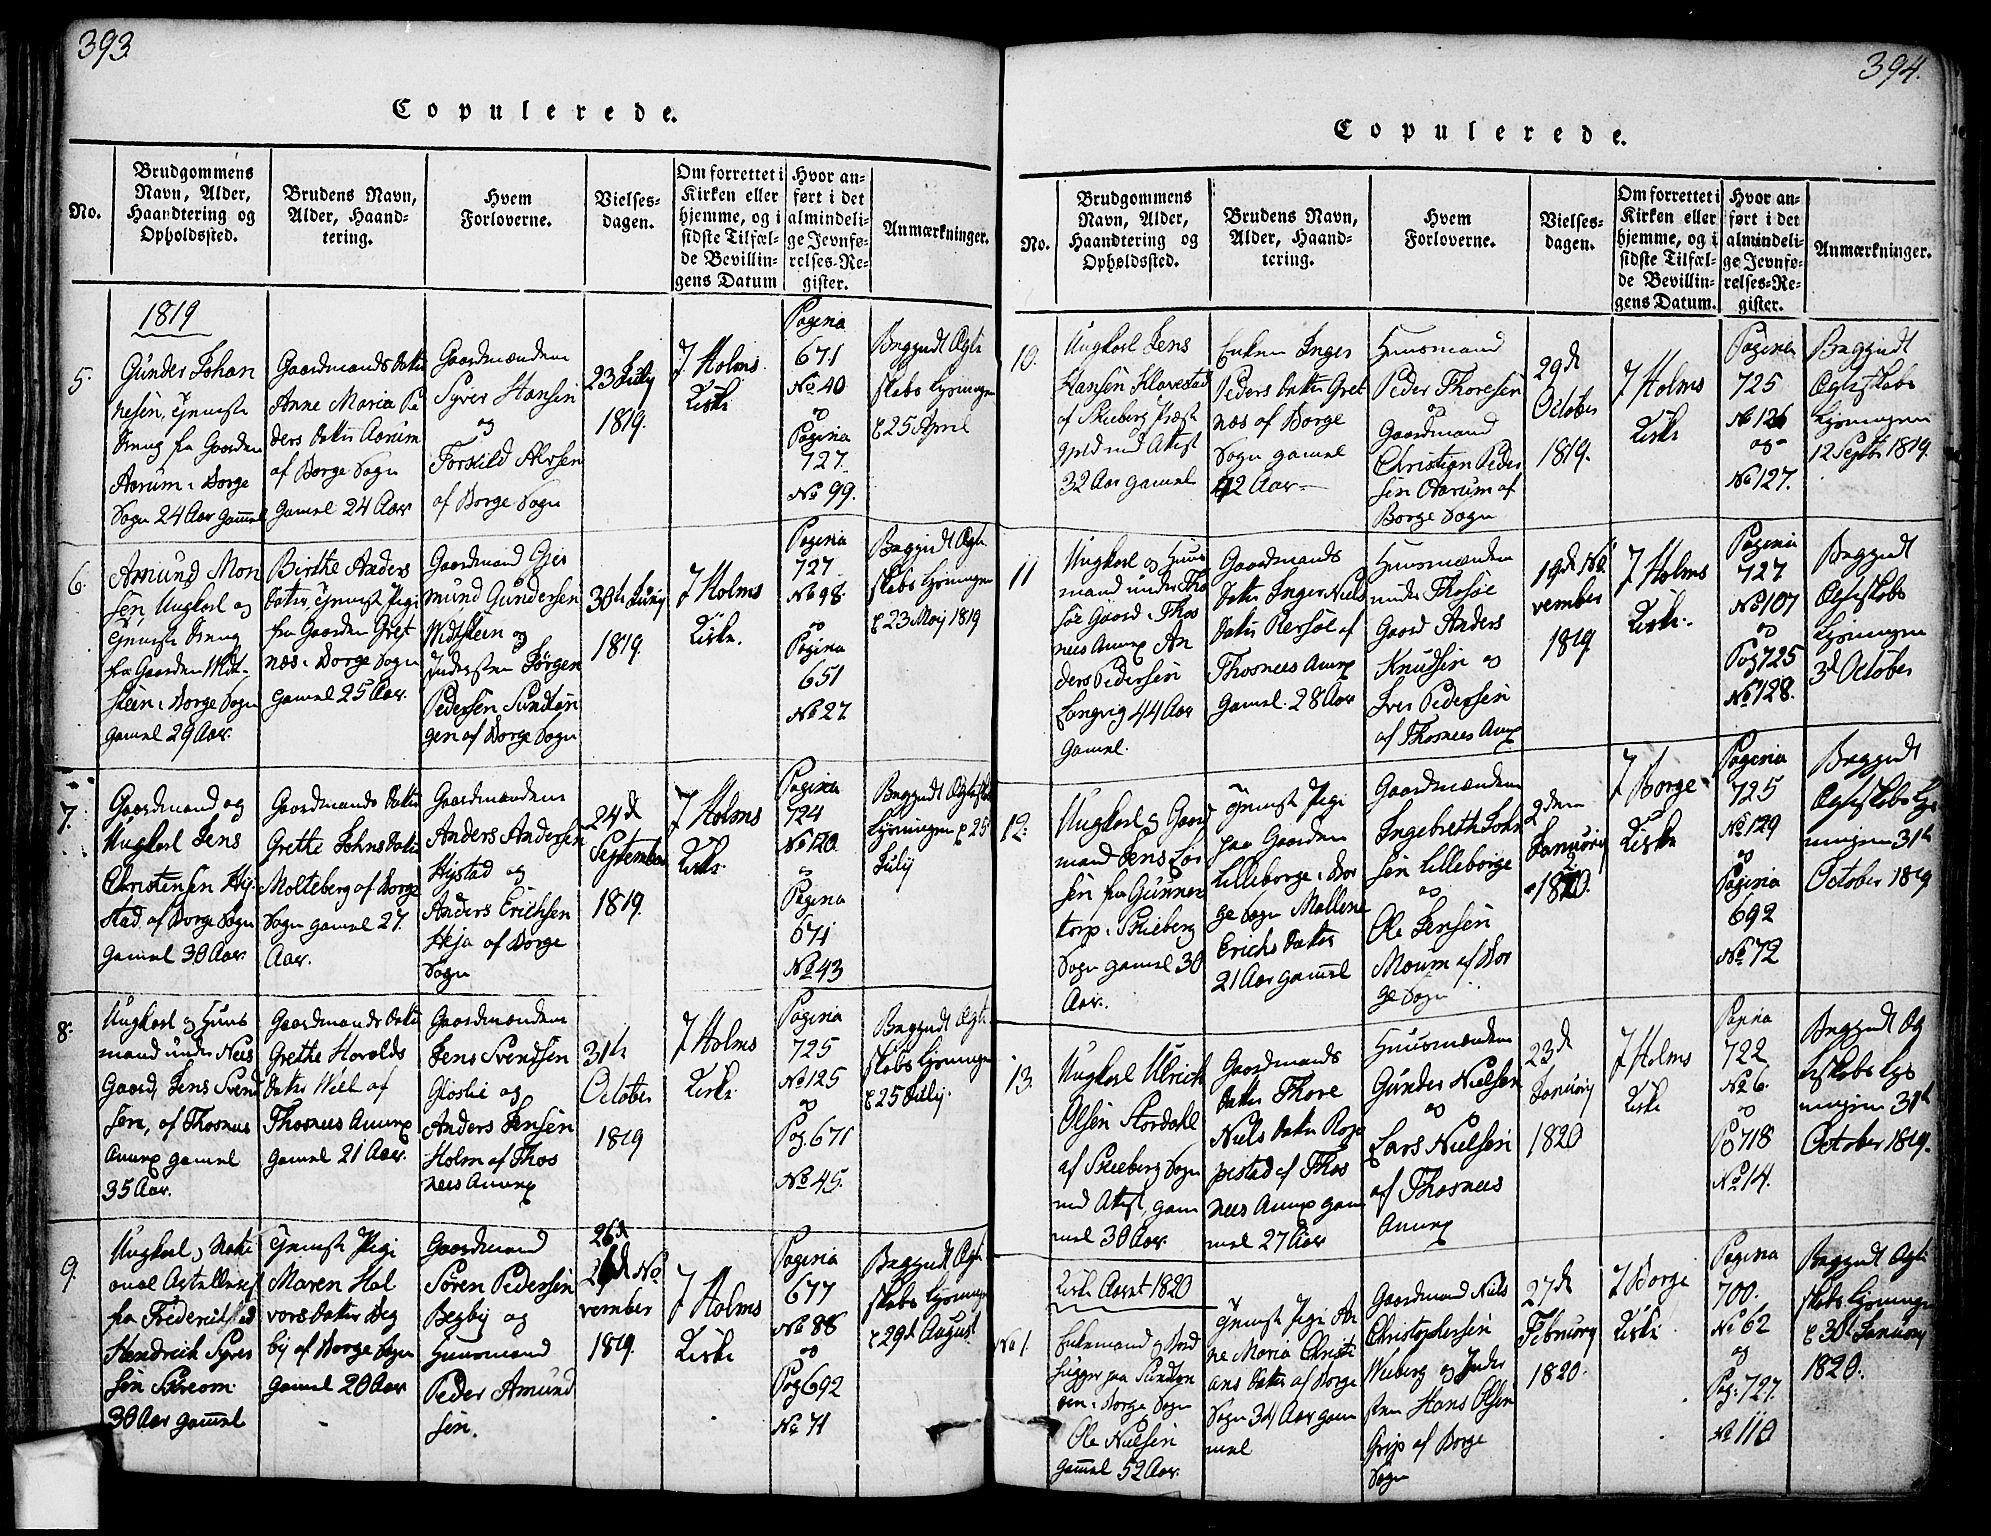 393
Copulerede.
No.
Brudgommens
Navn, Alder,
Haandtering og
Opholdssted.
Brudens Navn,
Alder, Haand-
tering.
Hvem
Forloverne.
Vielses-
dagen.
Om forrettet i
Kirken eller
hjemme, og i
sidste Tilfæl-
de Bevillin-
gens Datum
Hvor an-
ført i det
almindeli-
ge Jevnfø-
relses-Re-
gister.
Anmærkninger.
1819
5.
Gunder Johan
nesen, tjeneste
dreng fra Gaarden
Aarum i Borge
Sogn 24 Aar gammel
Gaardmands datter
Anne Maria Pe
ders datter Aarum
af Borge Sogn
gamel 24 Aar
Gaardmændene
Syver Hansen
og
Torkild Alexsen
af Borge Sogn
23 July
1819.
I Holms
Kirke
Pagina
671
No 40
og
Pagina
727.
No 99.
Begyndt Ægte
skabs Lysningen
d 25 April
6.
Amund Mon
sen Ungkarl og
tjeneste dreng
fra Gaarden Hvid-
steen i Borge Sogn
gamel 29 Aar.
Birthe Anders
datter tjeneste Pige
fra Gaarden Gret
næs i Borge Sogn
gamel 25 Aar.
Gaardmand Gjer
mund Gundersen
Hvidsteen og
Indersten Jørgen
Pedersen Sundløn
gen af Borge Sogn
30th Juny
1819.
I Holms
Kirke.
Pagina
727
No 98.
og
Pagina
651
No 27
Begyndt Ægte
skabs Lysningen
d 23 Maj 1819
7.
Gaardmand og
Ungkarl Jens
Christensen Hy-
stad af Borge Sogn
gamel 30 Aar
Gaardmands datter
Grethe Johns datter
Molteberg af Borge
Sogn gamel 27.
Aar.
Gaardmændene
Anders Andersen
Hystad og
Anders Erichsen
Heja af Borge
Sogn
24de
September
1819.
I Holms
Kirke
Pagina
724
No 120.
og
Pagina
671
No 43
Begyndt Ægteskabs
Lysningen d 25
July
8.
Ungkarl og Huus
mand under Nees
Gaard, Jens Svend
sen, af Thosnees
Annex gamel
35 Aar.
Gaardmands datter
Grethe Harolds
datter Weel af
Thosnees Annex
gamel 21 Aar.
Gaardmændene
Jens Svendsen
Gloslie og
Anders Jensen
Holm af Thos
nees Annex
31te
October
1819
I Holms
Kirke
Pagina
725
No 125
og
Pag. 671
No 45.
Begyndt Ægte
skabs Lysningen
d 25 July.
9.
Ungkarl, Nati
onal Artellerist
fra Friderichstad
Hendrich Syver
sen Skreom
30 Aar gammel
Tjeneste Pige
Maren Hal
vors datter Beg
bÿ af Borge Sogn
gamel 20 Aar
Gaardmand
Søren Pedersen
Begby og
Huusmand
Peder Amund
sen.
26de
No
vember
1819.
I Holms
Kirke
Pagina
677
No 88
og
Pag 692
No 71
Begyndt Ægte
skabs Lysningen
d 29de August
394.
Copulerede.
No.
Brudgommens
Navn, Alder,
Haandtering og
Opholdssted.
Brudens Navn,
Alder, Haand-
tering.
Hvem
Forloverne.
Vielses-
dagen.
Om forrettet i
Kirken eller
hjemme, og i
sidste Tilfæl-
de Bevillin-
gens Datum.
Hvor an-
ført i det
almindeli-
ge Jevnfø-
relses-Re-
gister.
Anmærkninger.
10.
Ungkarl Jens
Hansen Klavestad
af Skieberg Præste
gield med Attest
32 Aar gamel
Enken Inger
Peders datter Gret
næs af Borge
Sogn gamel
42 Aar
Huusmand
Peder Thoresen
og
Gaardmand
Christian Peder
sen Aarum af
Borge Sogn
29de
October
1819.
I Holms
Kirke
Pagina
725
No 126
og
No 127.
Begyndt
Ægteskabs
Lysningen
12 Septbr 1819.
11
Ungkarl og Huus
mand under Tho
søe Gaard i Thos
nees Annex An
ders Pedersen
Langvig 44 Aar
gamel.
Gaardmands
datter Inger Niels
datter Kersøe af
Thosnees Annex
gamel 28 Aar
Huusmændene
under Thosøe
Gaard Anders
Knudsen og
Iver Pedersen
af Thosnees Anex
19de No
vember
1819
I Holms
Kirke.
Pagina
727
No 107
og
Pag 725
No 128.
Begyndt
Ægteskabs
Lysningen
3d October
12.
Ungkarl og Gaard
mand Jens Lar
sen fra Gunners
torp i Skieberg
Sogn gamel 30
Aar.
Tjeneste Pige
paa Gaarden
Lilleborge i Bor
ge Sogn Mallene
Erichs datter
21 Aar gamel
Gaardmændene
Ingebreth John
sen Lilleborge
og
Ole Jensen
Moum af Bor
ge Sogn
2den
January
1820.
I Borge
Kirke
Pagina
725
No 129
og
Pagina
692
No 72
Begyndt
Ægteskabs Lys
ningen 31te
October 1819
13.
Ungkarl Ulrich
Olsen Stordahl
af Skieberg Sogn
med Attest, gam
mel 30 Aar.
Gaardmands
datter Thore
Niels datter Rop
pestad af Thos
nees Annex gam
mel 27 Aar
Huusmændene
Gunder Nielsen
og
Lars Nielsen
af Thosnees
Annex
23de
January
1820
I Holms
Kirke
Pagina
722
No 6.
og
Pag 718
No 14.
Begyndt Æg
teskabs Lys
ningen 31te
October 1819.
Kirke Aaret 1820
No 1.
Enkemand og Bord
hugger paa Sundlø
en i Borge Sogn
Ole Nielsen
gamel 52 Aar.
Tjeneste Pige An
ne Maria Christi
ans datter af Borge
Sogn 34 Aar gam
mel
Gaardmand Niels
Christophersen
Weeberg og Inder
sten Hans Olsen
Grip af Borge
Sogn
27de
February
1820.
I Borge
Kirke
Pagina
700.
No 62
og
Pag. 727.
No 110
Begyndt Ægte
skabs Lysningen
d 30te January
1820.